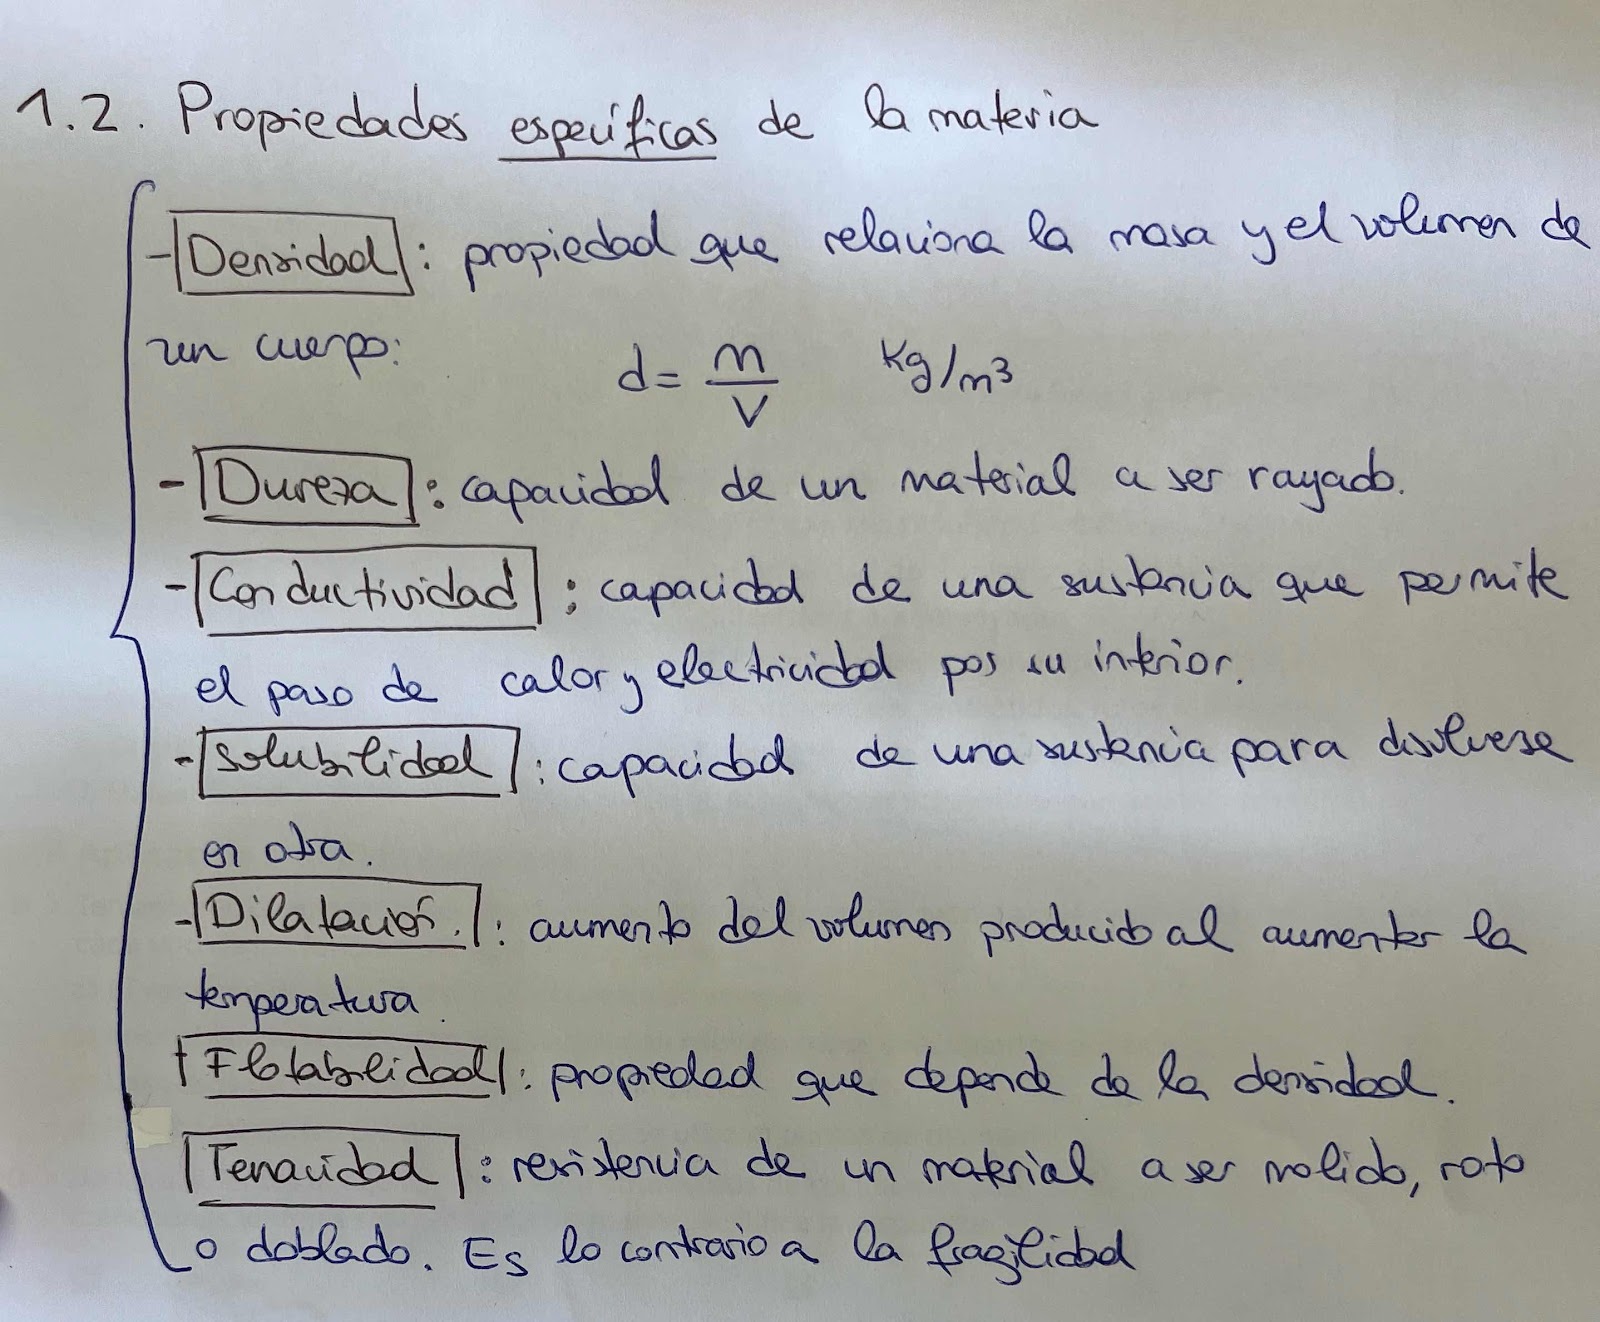 1.2. Propiedades específicas de la materia
- Densidad : propiedad que relaciona la masa y el volumen de
un cuerpo: d = m/V Kg/m³
- Dureza : capacidad de un material a ser rayado.
- Conductividad : capacidad de una sustancia que permite
el paso de calor y electricidad por su interior.
- Solubilidad : capacidad de una sustancia para disolverse
en otra.
- Dilatación. : aumento del volumen producido al aumentar la
temperatura.
- Flotabilidad : propiedad que depende de la densidad.
Tenacidad : resistencia de un material a ser molido, roto
o doblado. Es lo contrario a la fragilidad